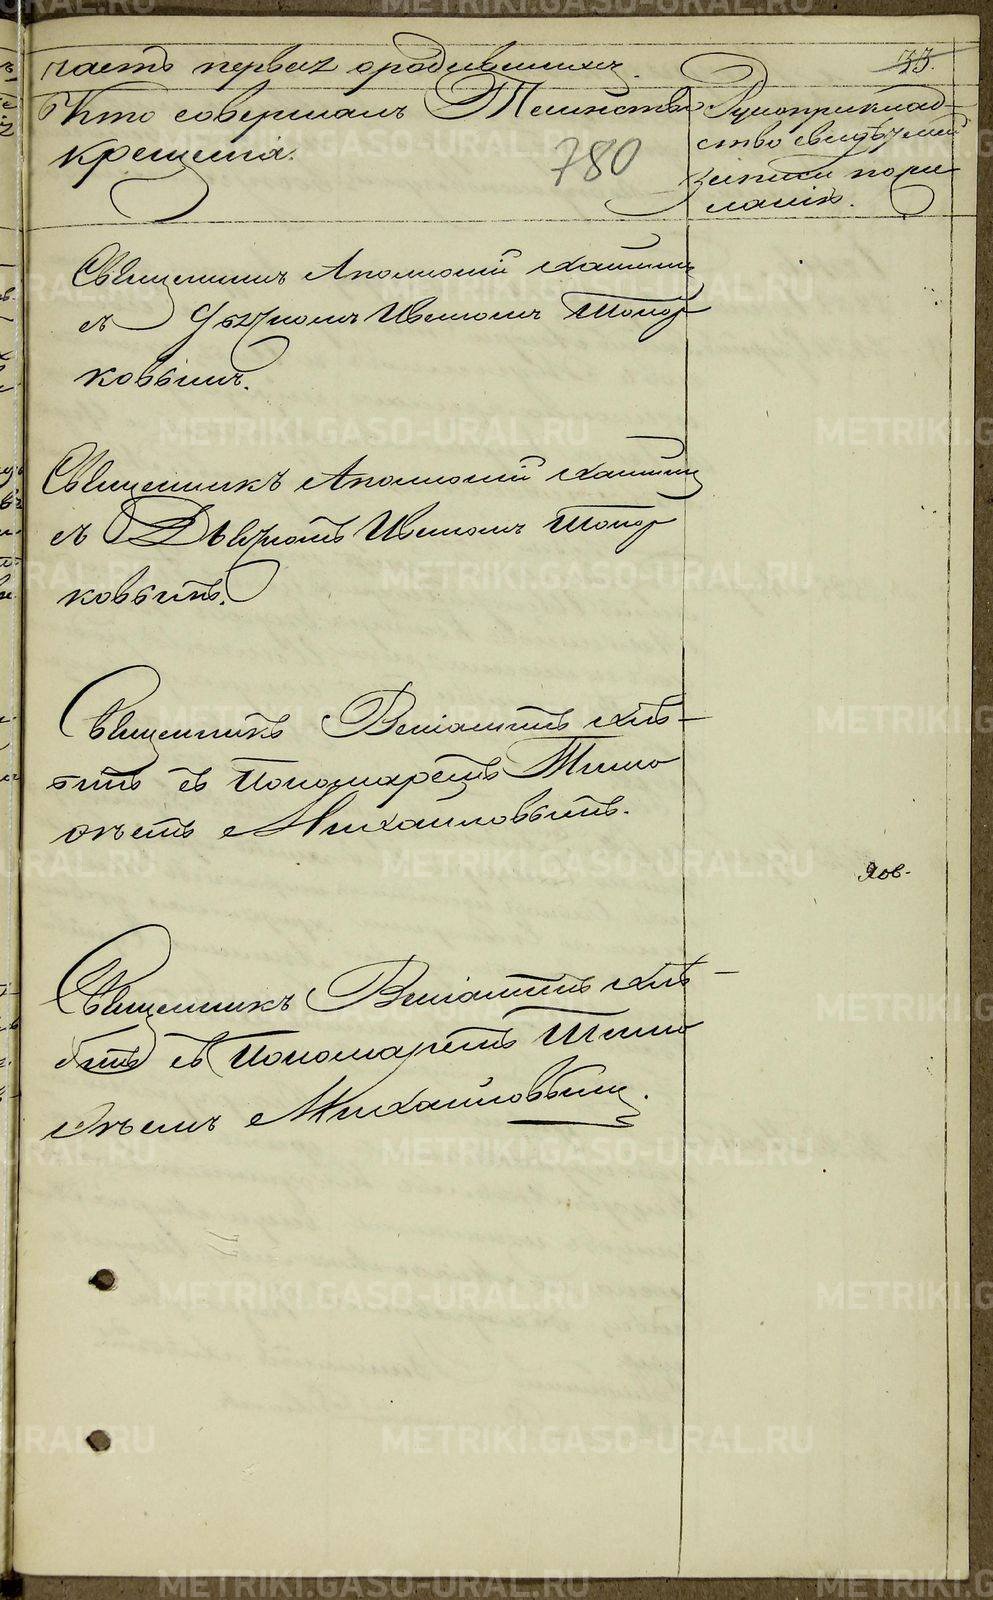 часть первая о родившихся.
33.
Кто совершалъ Таинство
крещенія.
780
Рукоприклад-
ство свидѣтелей
записи по же-
ланію.
Священникъ Аполлоній
съ Дьячкомъ Иваномъ Топор
ковымъ.
Священникъ Аполлоній
съ Дьячкомъ Иваномъ Топор
ковымъ.
Священникъ Веніаминъ Хлѣ-
бинъ съ Пономаремъ Тимо
ѳеемъ Михайловымъ.
Яов.
Священникъ Веніаминъ Хлѣ-
бинъ съ Пономаремъ Тимо
ѳеемъ Михайловымъ.
METRIKI.GASO-URAL.RU